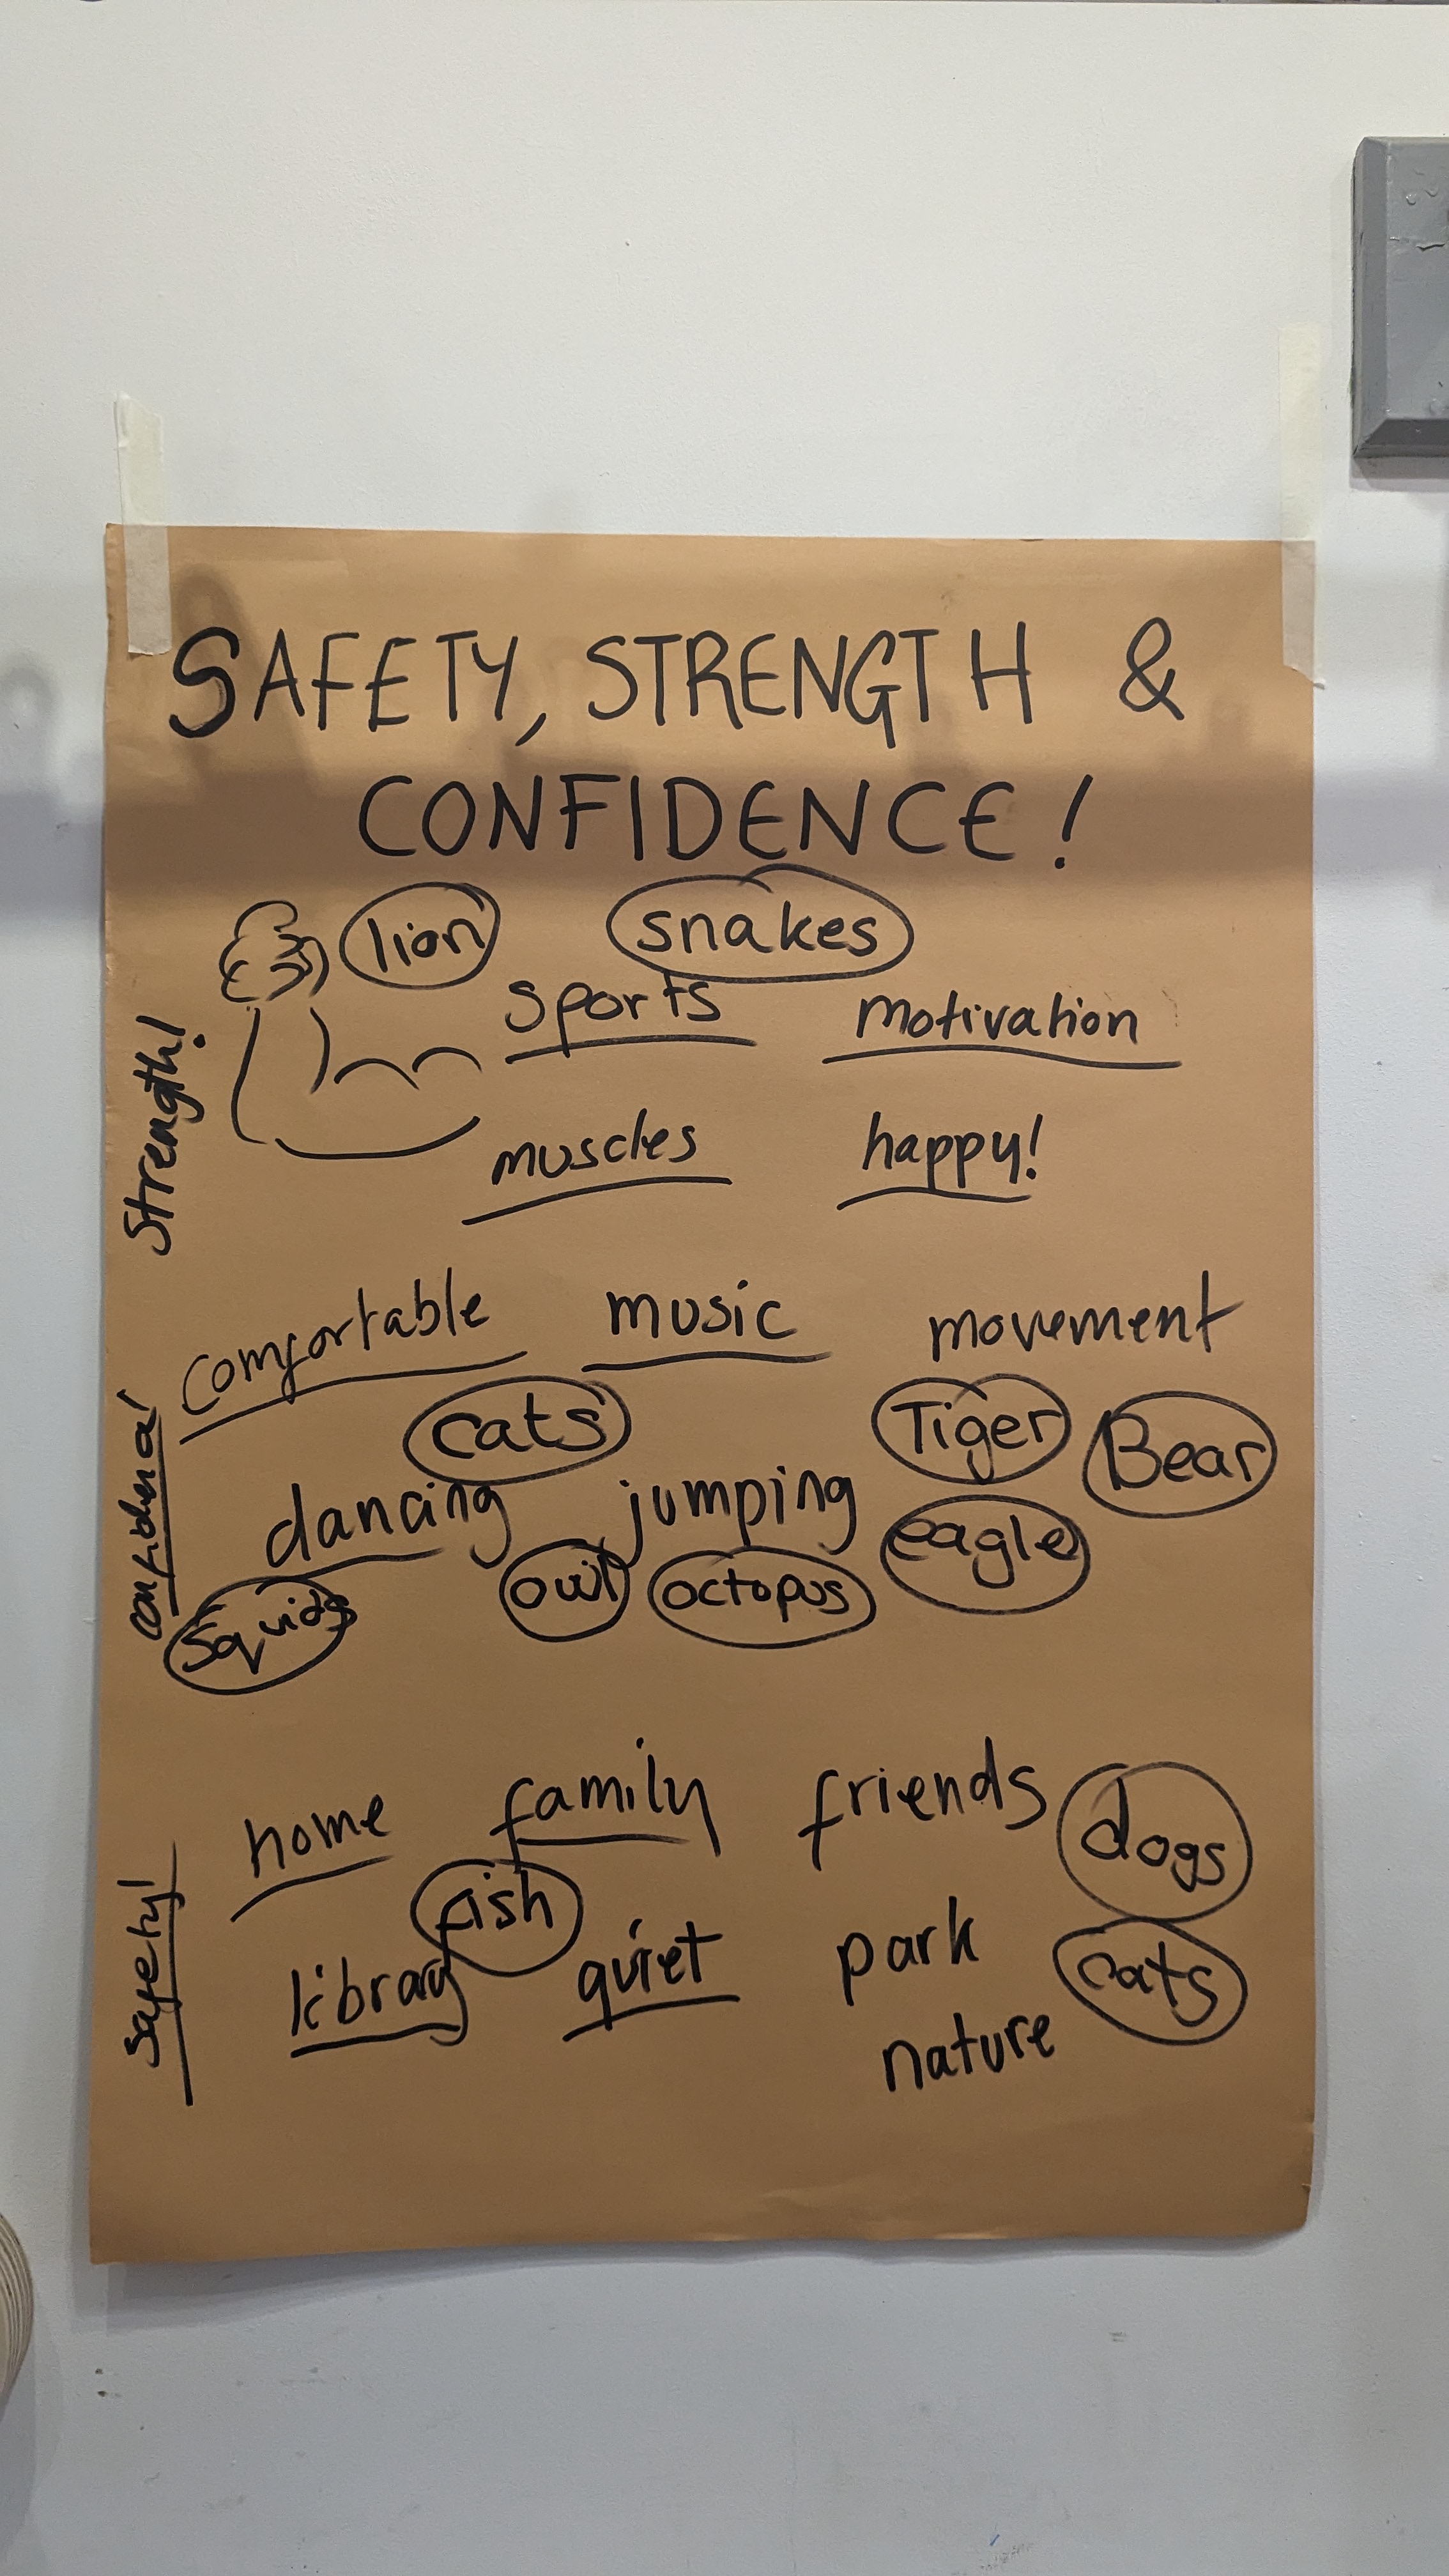 SAFETY, STRENGTH &
CONFIDENCE!
Strength!
lion snakes
sports motivation
muscles happy!
comfortable music movement
cats Tiger Bear
dancing jumping eagle
squids owl octopus
Safety!
home family friends dogs
fish
library quiet park cats
nature